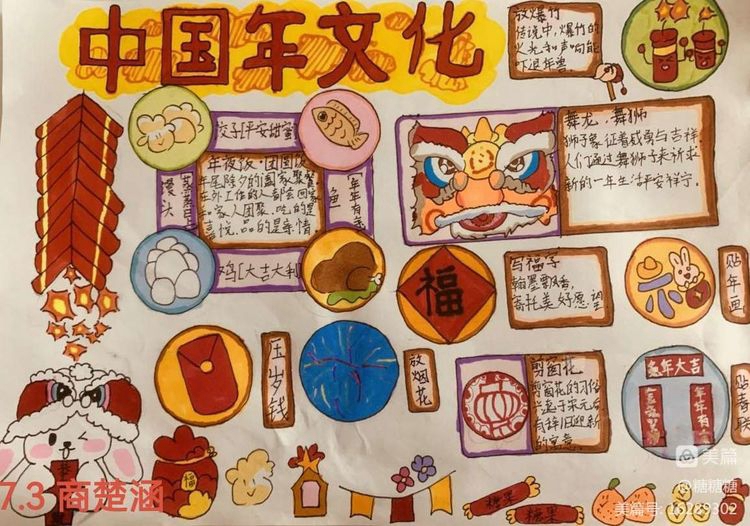 中国年文化
放爆竹
传说中,爆竹的
火光和声响能
吓退年兽
饺子[平安甜蜜]
年夜饭·团圆饭
年尾除夕的阖家聚餐
在外工作的人都会回家
和家人团聚.吃的是
喜悦,品的是亲情
馒头
蒸蒸日上
鱼
年年有余
鸡[大吉大利]
舞龙·舞狮
狮子象征着威勇与吉祥
人们通过舞狮子来祈求
新的一年生活平安祥宁.
福
写福字
翰墨飘香,
寄托美好愿望
贴年画
压岁钱
放烟花
剪窗花
剪窗花的习俗
宋元后
有辞旧迎新
的寓意
兔年大吉
年年有余
贴春联
福
糖果
糖果
7.3 商楚涵
美篇
@糖糖糖
美篇号: 16289302